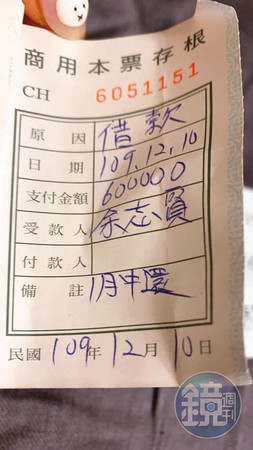 商用本票存根
CH 6051151
原因 借款
日期 109.12.10
支付金額 600000
受款人 余志賢
付款人
備註 1月中還
民國109年12月10日
鏡週刊